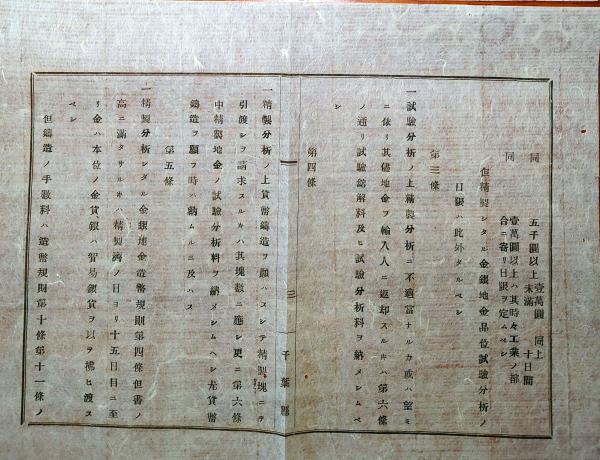 同 五千圓以上壹萬圓未滿 同上 十日間
同 壹萬圓以上ハ其時々工業ノ都合ニ寄リ日限ヲ定ムベシ
但精製シタル金銀地金品位試驗分析ノ
日限ハ此外タルベシ
第三條
一試驗分析ノ上精製分析ニ不適當ナルカ或ハ望ミ
ニ依リ其儘地金ヲ輸入人ニ返却スルキハ第六條
ノ通リ試驗鎔解料及ヒ試驗分析料ヲ納メシムベ
シ
第四條
一精製分析ノ上貨幣鑄造ヲ願ハスシテ精製塊ニテ
引渡シヲ請求スルキハ其塊數ニ應シ更ニ第六條
中精製地金ノ試驗分析料ヲ納メシムヘシ尤貨幣
鑄造ヲ願フ時ハ納ムルニ及ハス
第五條
一精製分析シタル金銀地金造幣規則第四條但書ノ
高ニ滿タサルキハ精製濟ノ日ヨリ十五日目ニ至
リ金ハ本位ノ金貨銀ハ貿易銀貨ヲ以テ拂ヒ渡ス
ベシ
但鑄造ノ手數料ハ造幣規則第十條第十一條ノ
三
千葉縣